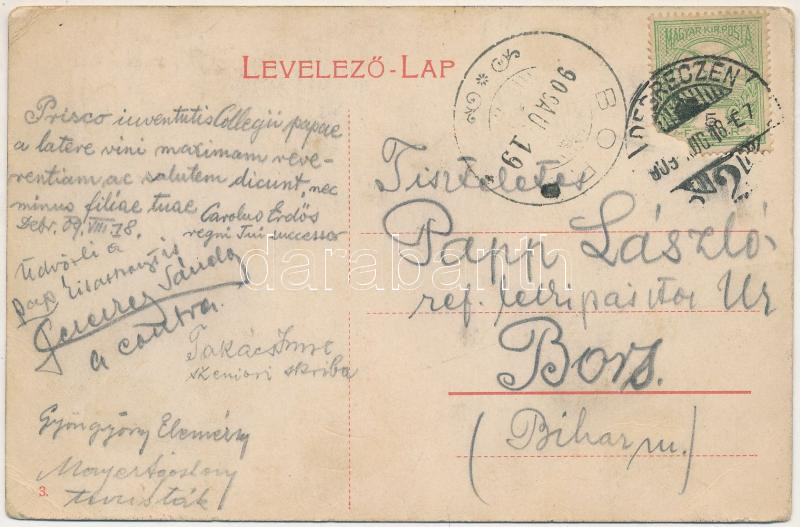 LEVELEZŐ-LAP
Prisco iuventutis Collegii papae
a latere vini maximam reve-
rentiam, ac salutem dicunt, nec
minus filiae tuae Carolus Erdős
Debr. 09. VIII. 18. regni Tui successor
Üdvözli a
Pap
Sándor
a contra.
Takács Imre
szeniori skriba
Gyöngyösy Elemér
Mayer Ágoston
turisták
3.
Tiszteletes
Papp László
ref. lelkipásztor Úr
Bors.
(Bihar m.)
MAGYAR KIR. POSTA
5
DEBRECZEN
909 AUG 18
BORS
909 AUG 19
darabanth